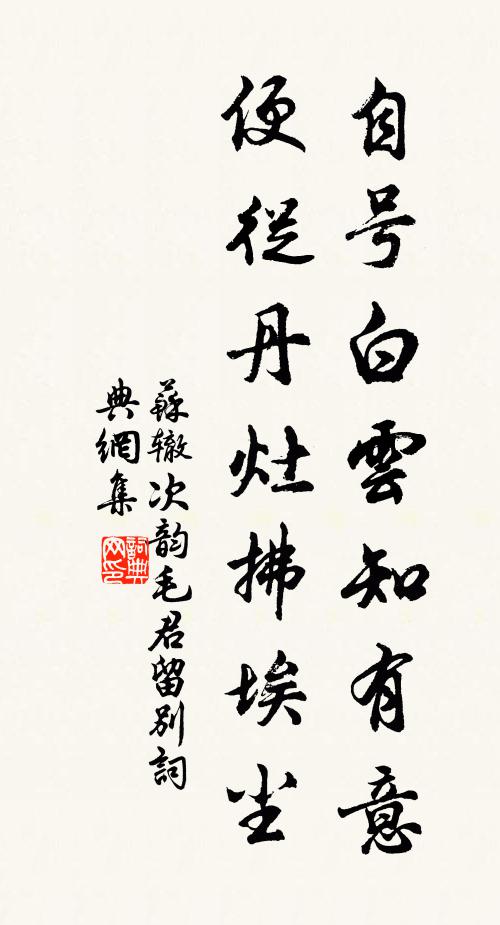 自号白雲知有意
便從丹灶拂埃尘
蘇辙次韵毛君留别詞
典網集
詞典网印